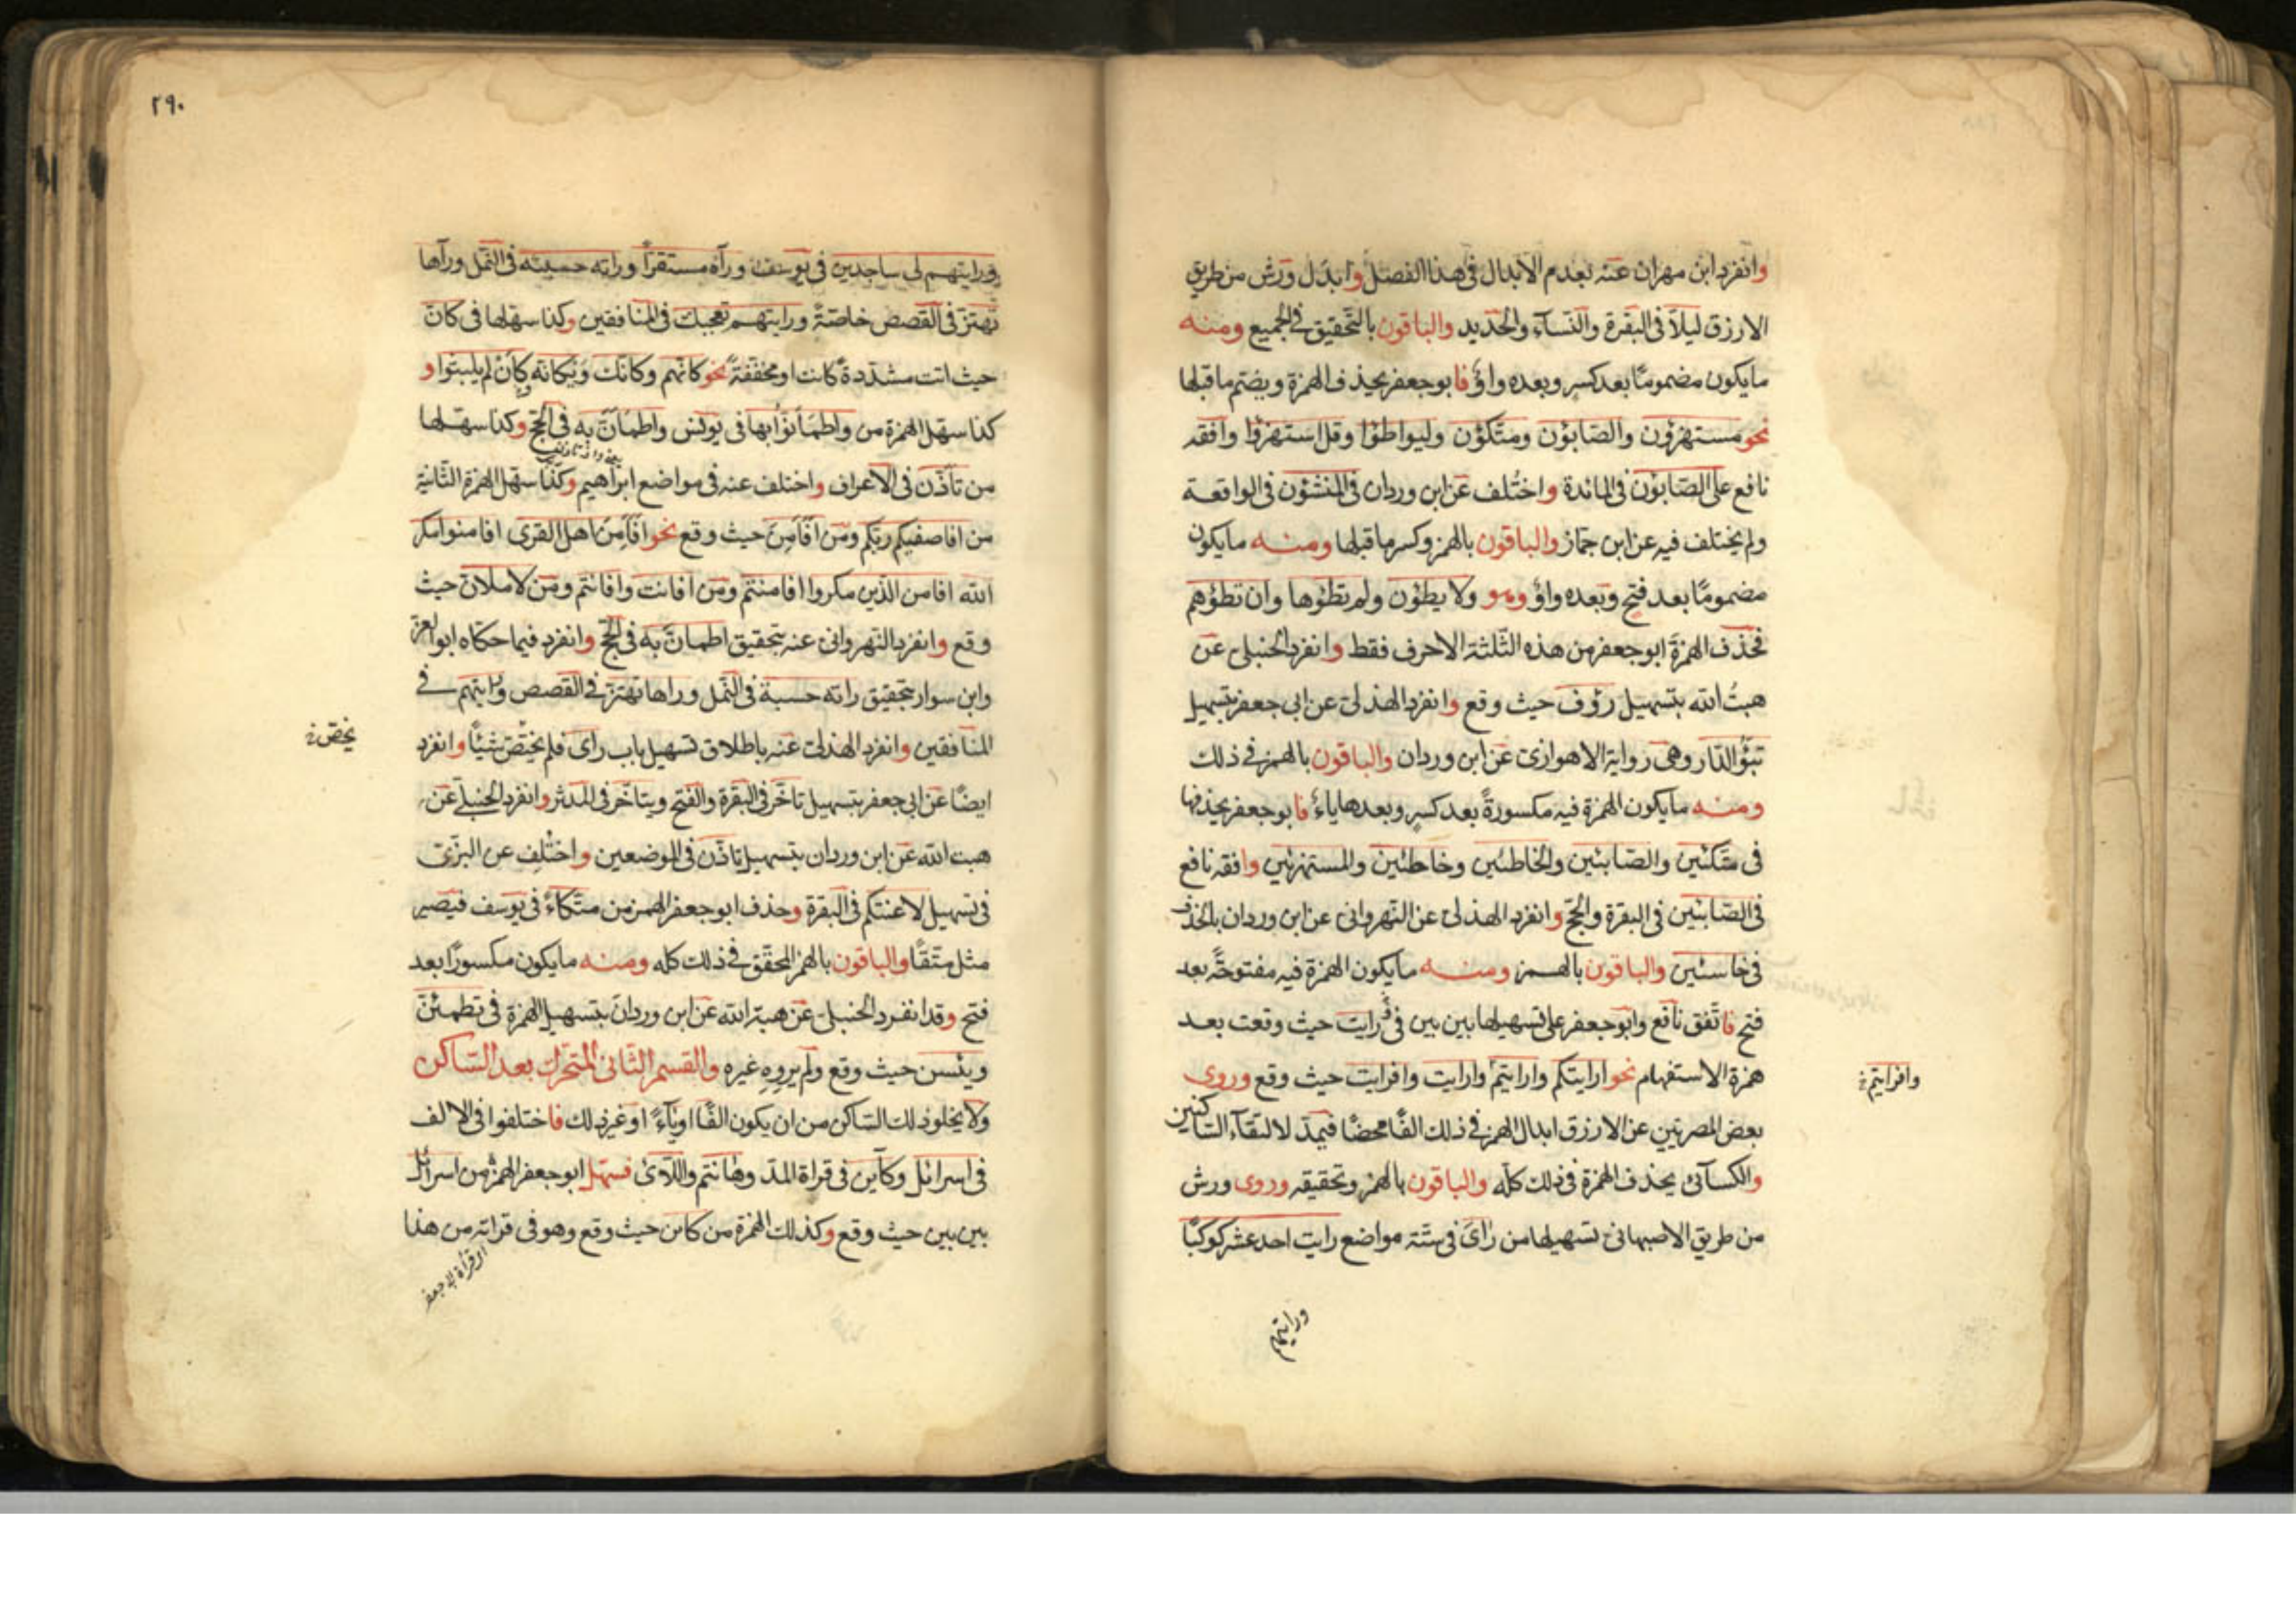 وانفرد ابن مهران عنه بعدم الابدال في هذا الفصل وابدل ورش من طريق
الازرق ليلا في البقرة والنسآء والحديد والباقون بالتحقيق في الجميع ومنه
مايكون مضموما بعد كسر وبعده واو فابوجعفر يحذف الهمزة ويضم ماقبلها
نحو مستهزؤن والصابؤن ومتكؤن وليواطؤا وقل استهزؤا وافقه
نافع على الصابؤن في المائدة واختلف عن ابن وردان في المنشؤن في الواقعة
ولم يختلف فيه عن ابن جماز والباقون بالهمز وكسر ماقبلها ومنه مايكون
مضموما بعد فتح وبعده واو وهو ولا يطؤن ولم تطؤها وان تطؤهم
فحذف الهمزة ابوجعفر من هذه الثلثة الاحرف فقط وانفرد الحنبلي عن
هبت الله بتسهيل رؤف حيث وقع وانفرد الهذلي عن ابي جعفر بتسهيل
تبؤ الدار وهي رواية الاهوازي عن ابن وردان والباقون بالهمز في ذلك
ومنه مايكون الهمزة فيه مكسورة بعد كسر وبعدها ياء فابوجعفر يحذفها
في متكئين والصابئين والخاطئين وخاطئين والمستهزئين وافقه نافع
في الصابئين في البقرة والحج وانفرد الهذلي عن النهرواني عن ابن وردان بالحذف
في خاسئين والباقون بالهمز ومنه مايكون الهمزة فيه مفتوحة بعد
فتح فاتفق نافع وابوجعفر على تسهيلها بين بين في رايت حيث وقعت بعد
همزة الاستفهام نحو ارايتكم وارايتم وارايت وافرايت حيث وقع وروى
وافرايتم
بعض المصريين عن الازرق ابدال الهمز في ذلك الفا محضا فيمد لالتقآء الساكنين
والكسآئي يحذف الهمزة في ذلك كله والباقون بالهمز وتحقيقه وروى ورش
من طريق الاصبهاني تسهيلها من راى في ستة مواضع رايت احد عشر كوكبا
ورايتهم
٢٩٠
ورايتهم لي ساجدين في يوسف ورآه مستقرا وراته حسبته في النمل ورآها
تهتز في القصص خاصة ورايتهم تعجبك في المنافقين وكذا سهلها في كان
حيث اتت مشددة كانت او مخففة نحو كانهم وكانك ويكانه كان لم يلبثوا و
كذا سهل الهمزة من واطمأنوا بها في يونس واطمأن به في الحج وكذا سهلها
من تأذن في الاعراف واختلف عنه في مواضع ابراهيم وكذا سهل الهمزة الثانية
من افاصفيكم ربكم ومن افأمن حيث وقع نحو افأمن اهل القرى افامنوا مكر
الله افامن الذين مكروا افامنتم ومن افانت وافانتم ومن لاملان حيث
وقع وانفرد النهرواني عنه بتحقيق اطمان به في الحج وانفرد فيما حكاه ابو العز
وابن سوار بتحقيق راته حسبة في النمل وراها تهتز في القصص ورايتهم في
المنافقين وانفرد الهذلي عنه باطلاق تسهيل باب راى فلم يختص شيئا وانفرد
يخص
ايضا عن ابي جعفر بتسهيل تاخر في البقرة والفتح ويتاخر في المدثر وانفرد الحنبلي عن
هبت الله عن ابن وردان بتسهيل تاذن في الموضعين واختلف عن البزي
في تسهيل لاعنتكم في البقرة وحذف ابوجعفر الهمز من متكاء في يوسف فيصير
مثل متقا والباقون بالهمز المحقق في ذلك كله ومنه مايكون مكسورا بعد
فتح وقد انفرد الحنبلي عن هبة الله عن ابن وردان بتسهيل الهمزة في تطمئن
ويئسن حيث وقع ولم يروه غيره والقسم الثاني المتحرك بعد الساكن
ولا يخلو ذلك الساكن من ان يكون الفا او يآء او غير ذلك فاختلفوا في الالف
في اسرائل وكآين في قراة المد وهانتم واللائ فسهل ابوجعفر الهمز من اسرائل
بين بين حيث وقع وكذلك الهمزة من كائن حيث وقع وهو في قراته من هذا